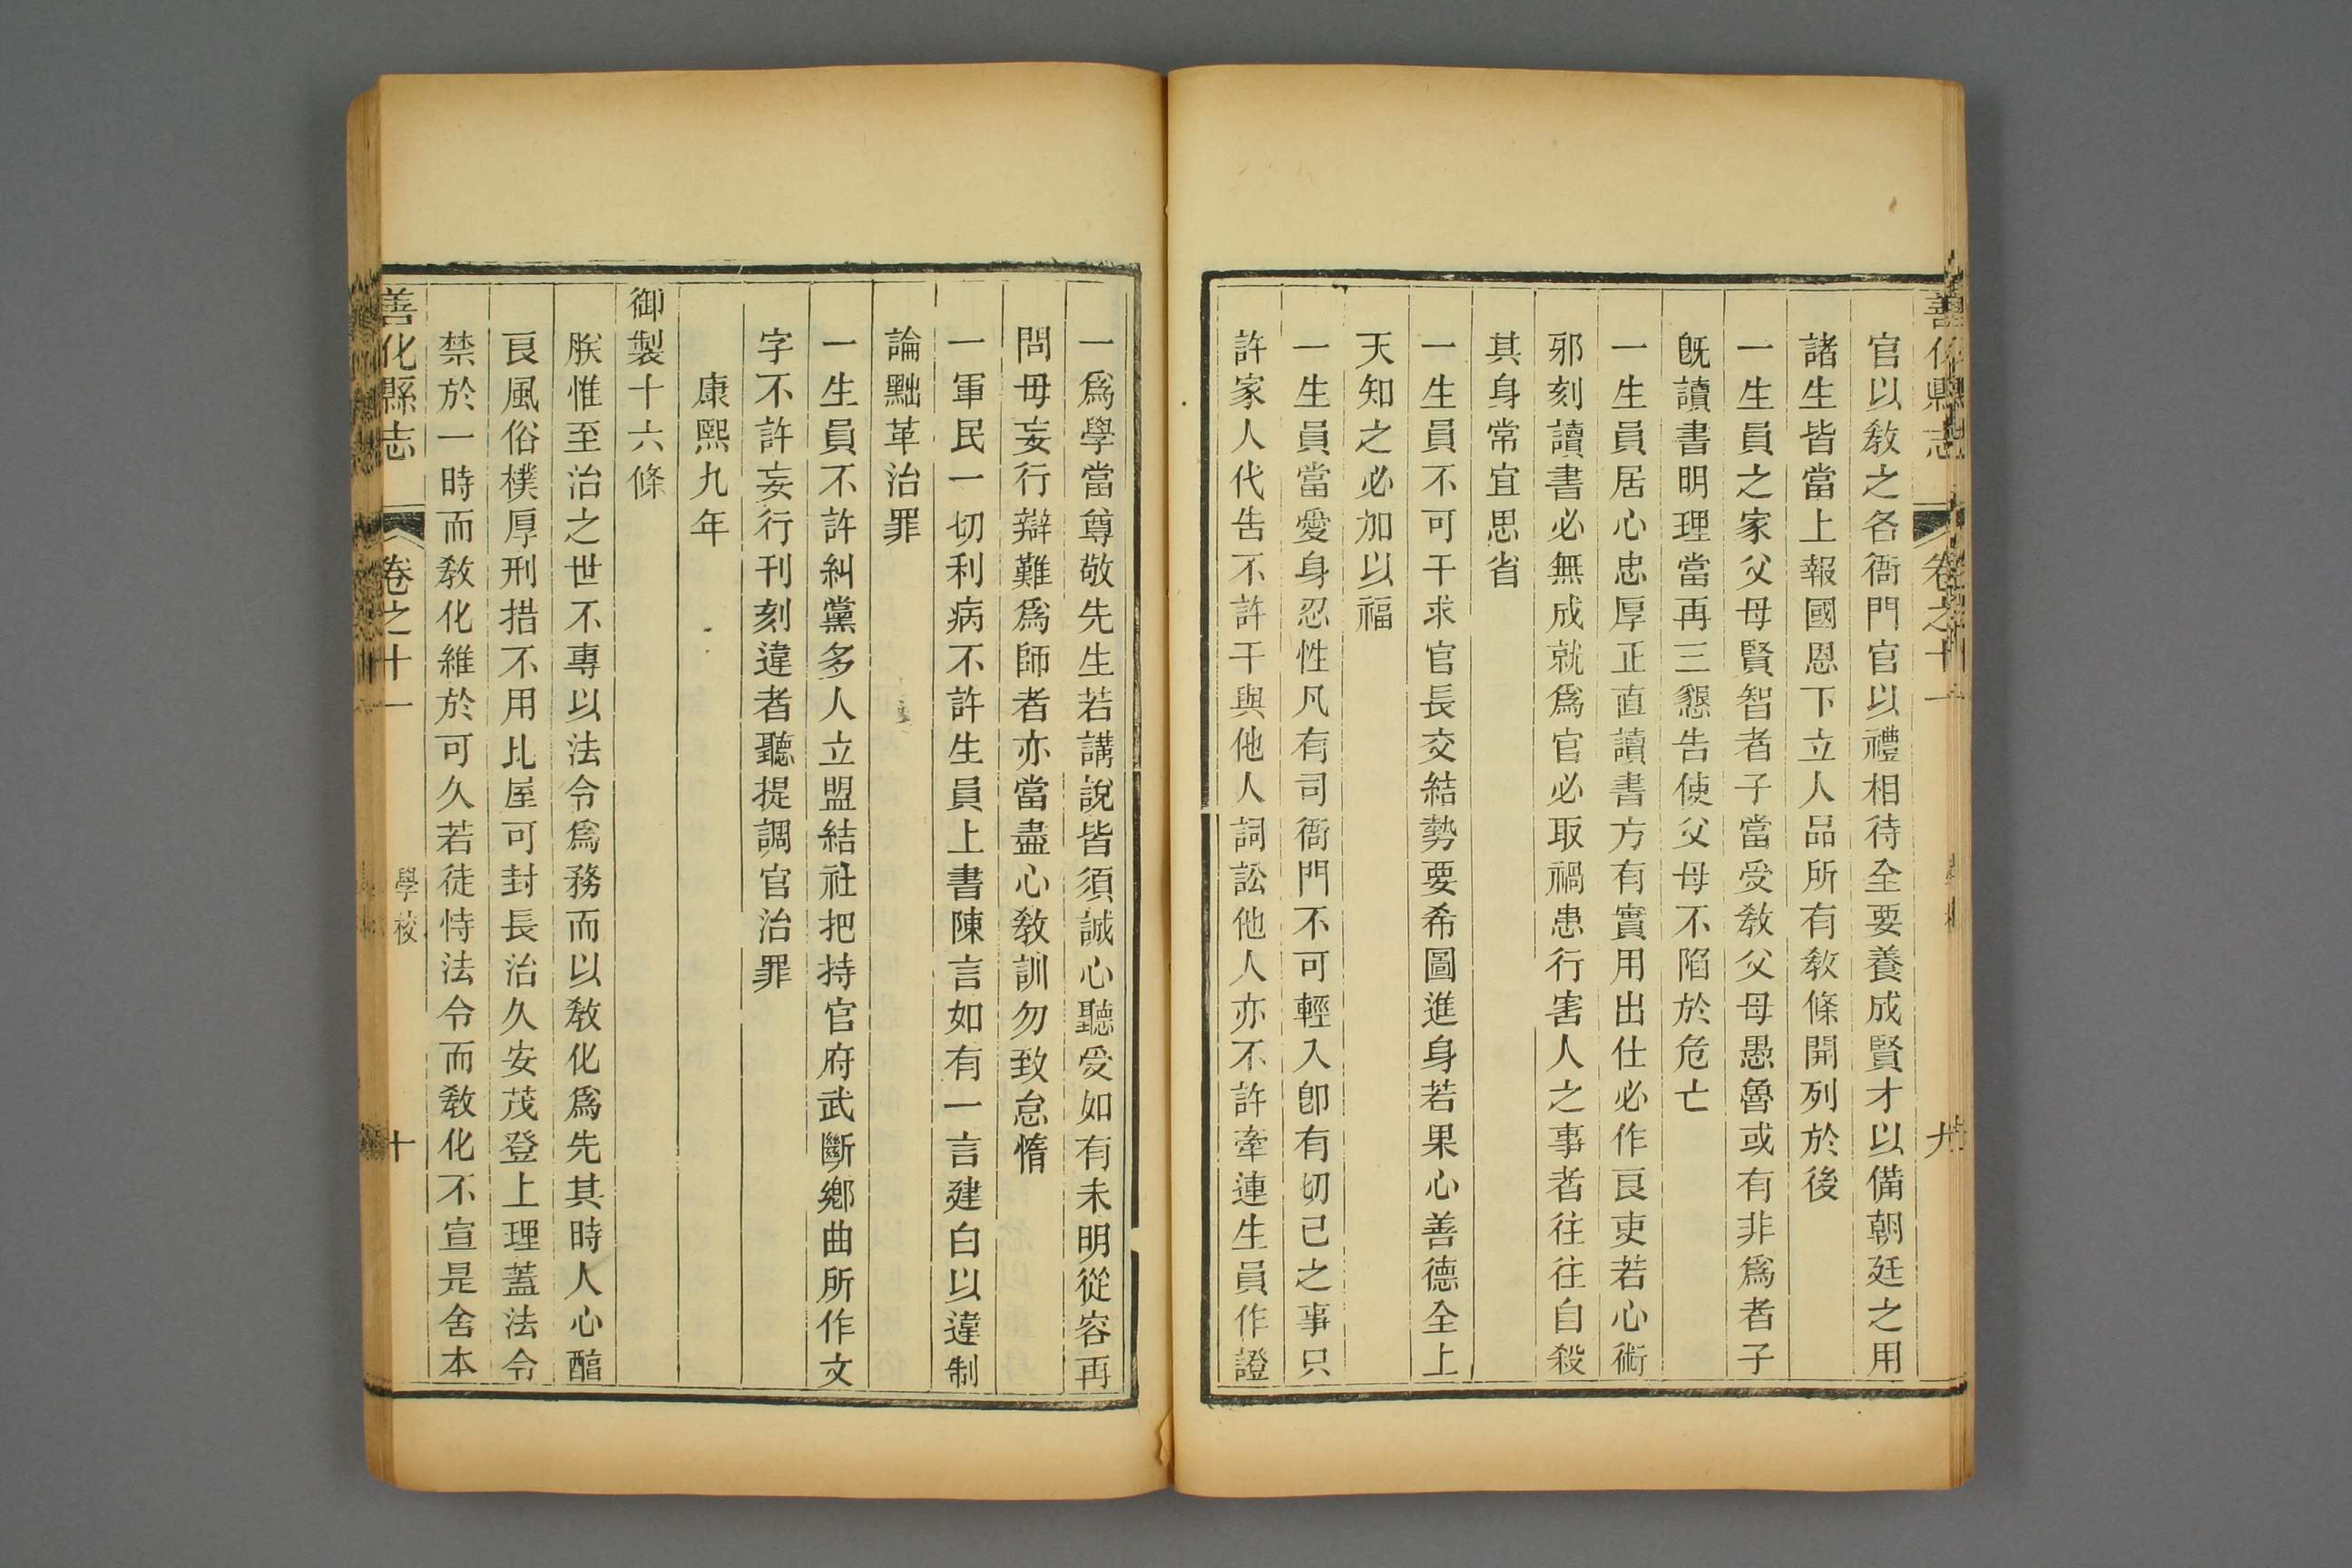 善化縣志 卷之十一 九
官以教之各衙門官以禮相待全要養成賢才以備朝廷之用
諸生皆當上報國恩下立人品所有教條開列於後
一生員之家父母賢智者子當受教父母愚魯或有非爲者子
旣讀書明理當再三懇告使父母不陷於危亡
一生員居心忠厚正直讀書方有實用出仕必作良吏若心術
邪刻讀書必無成就爲官必取禍患行害人之事者往往自殺
其身常宜思省
一生員不可干求官長交結勢要希圖進身若果心善德全上
天知之必加以福
一生員當愛身忍性凡有司衙門不可輕入卽有切己之事只
許家人代吿不許干與他人詞訟他人亦不許牽連生員作證
一爲學當尊敬先生若講說皆須誠心聽受如有未明從容再
問毋妄行辯難爲師者亦當盡心教訓勿致怠惰
一軍民一切利病不許生員上書陳言如有一言建白以違制
論黜革治罪
一生員不許糾黨多人立盟結社把持官府武斷鄉曲所作文
字不許妄行刊刻違者聽提調官治罪
康熙九年
御製十六條
朕惟至治之世不專以法令爲務而以教化爲先其時人心醕
良風俗樸厚刑措不用比屋可封長治久安茂登上理蓋法令
禁於一時而教化維於可久若徒恃法令而教化不宣是舍本
善化縣志 卷之十一 學校 十